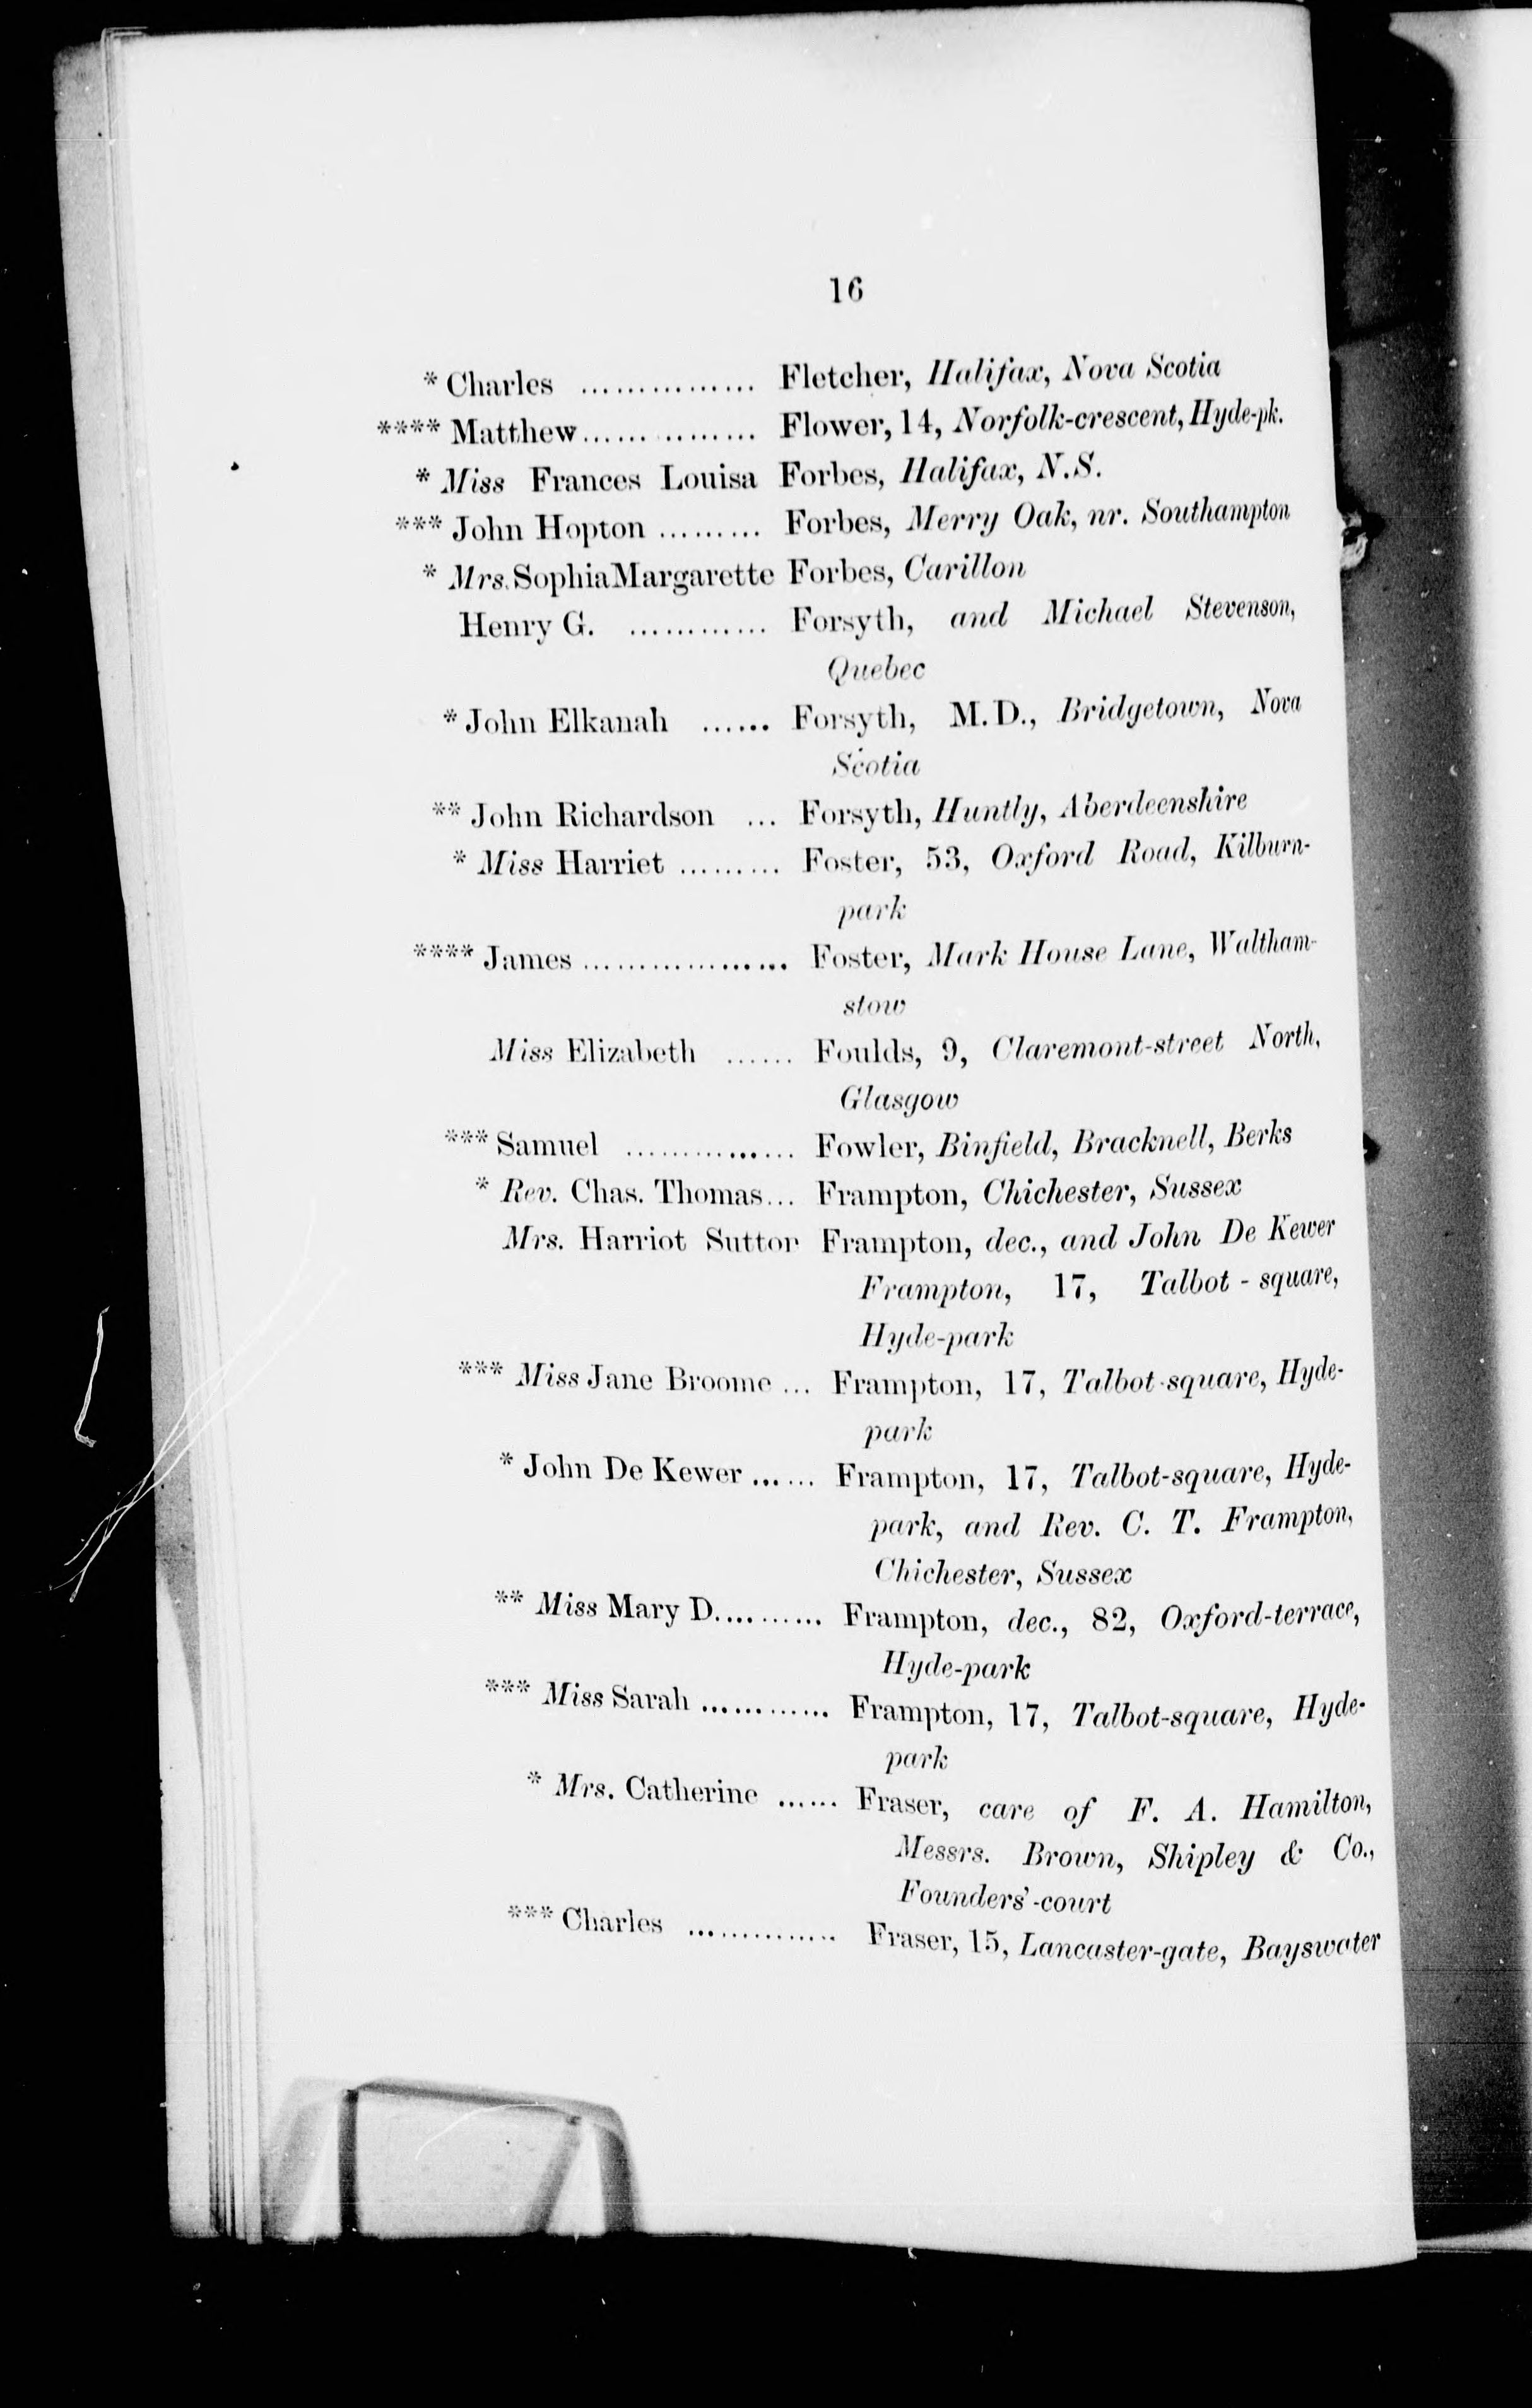 16
* Charles ............... Fletcher, Halifax, Nova Scotia
**** Matthew............... Flower, 14, Norfolk-crescent, Hyde-pk.
* Miss Frances Louisa Forbes, Halifax, N.S.
*** John Hopton ......... Forbes, Merry Oak, nr. Southampton
* Mrs. Sophia Margarette Forbes, Carillon
Henry G. ............ Forsyth, and Michael Stevenson,
Quebec
* John Elkanah ...... Forsyth, M.D., Bridgetown, Nova
Scotia
** John Richardson ... Forsyth, Huntly, Aberdeenshire
* Miss Harriet ......... Foster, 53, Oxford Road, Kilburn-
park
**** James .................. Foster, Mark House Lane, Waltham-
stow
Miss Elizabeth ...... Foulds, 9, Claremont-street North,
Glasgow
*** Samuel ............... Fowler, Binfield, Bracknell, Berks
* Rev. Chas. Thomas... Frampton, Chichester, Sussex
Mrs. Harriot Sutton Frampton, dec., and John De Kewer
Frampton, 17, Talbot-square,
Hyde-park
*** Miss Jane Broome ... Frampton, 17, Talbot-square, Hyde-
park
* John De Kewer ...... Frampton, 17, Talbot-square, Hyde-
park, and Rev. C. T. Frampton,
Chichester, Sussex
** Miss Mary D.......... Frampton, dec., 82, Oxford-terrace,
Hyde-park
*** Miss Sarah ............ Frampton, 17, Talbot-square, Hyde-
park
* Mrs. Catherine ...... Fraser, care of F. A. Hamilton,
Messrs. Brown, Shipley & Co.,
Founders'-court
*** Charles .............. Fraser, 15, Lancaster-gate, Bayswater